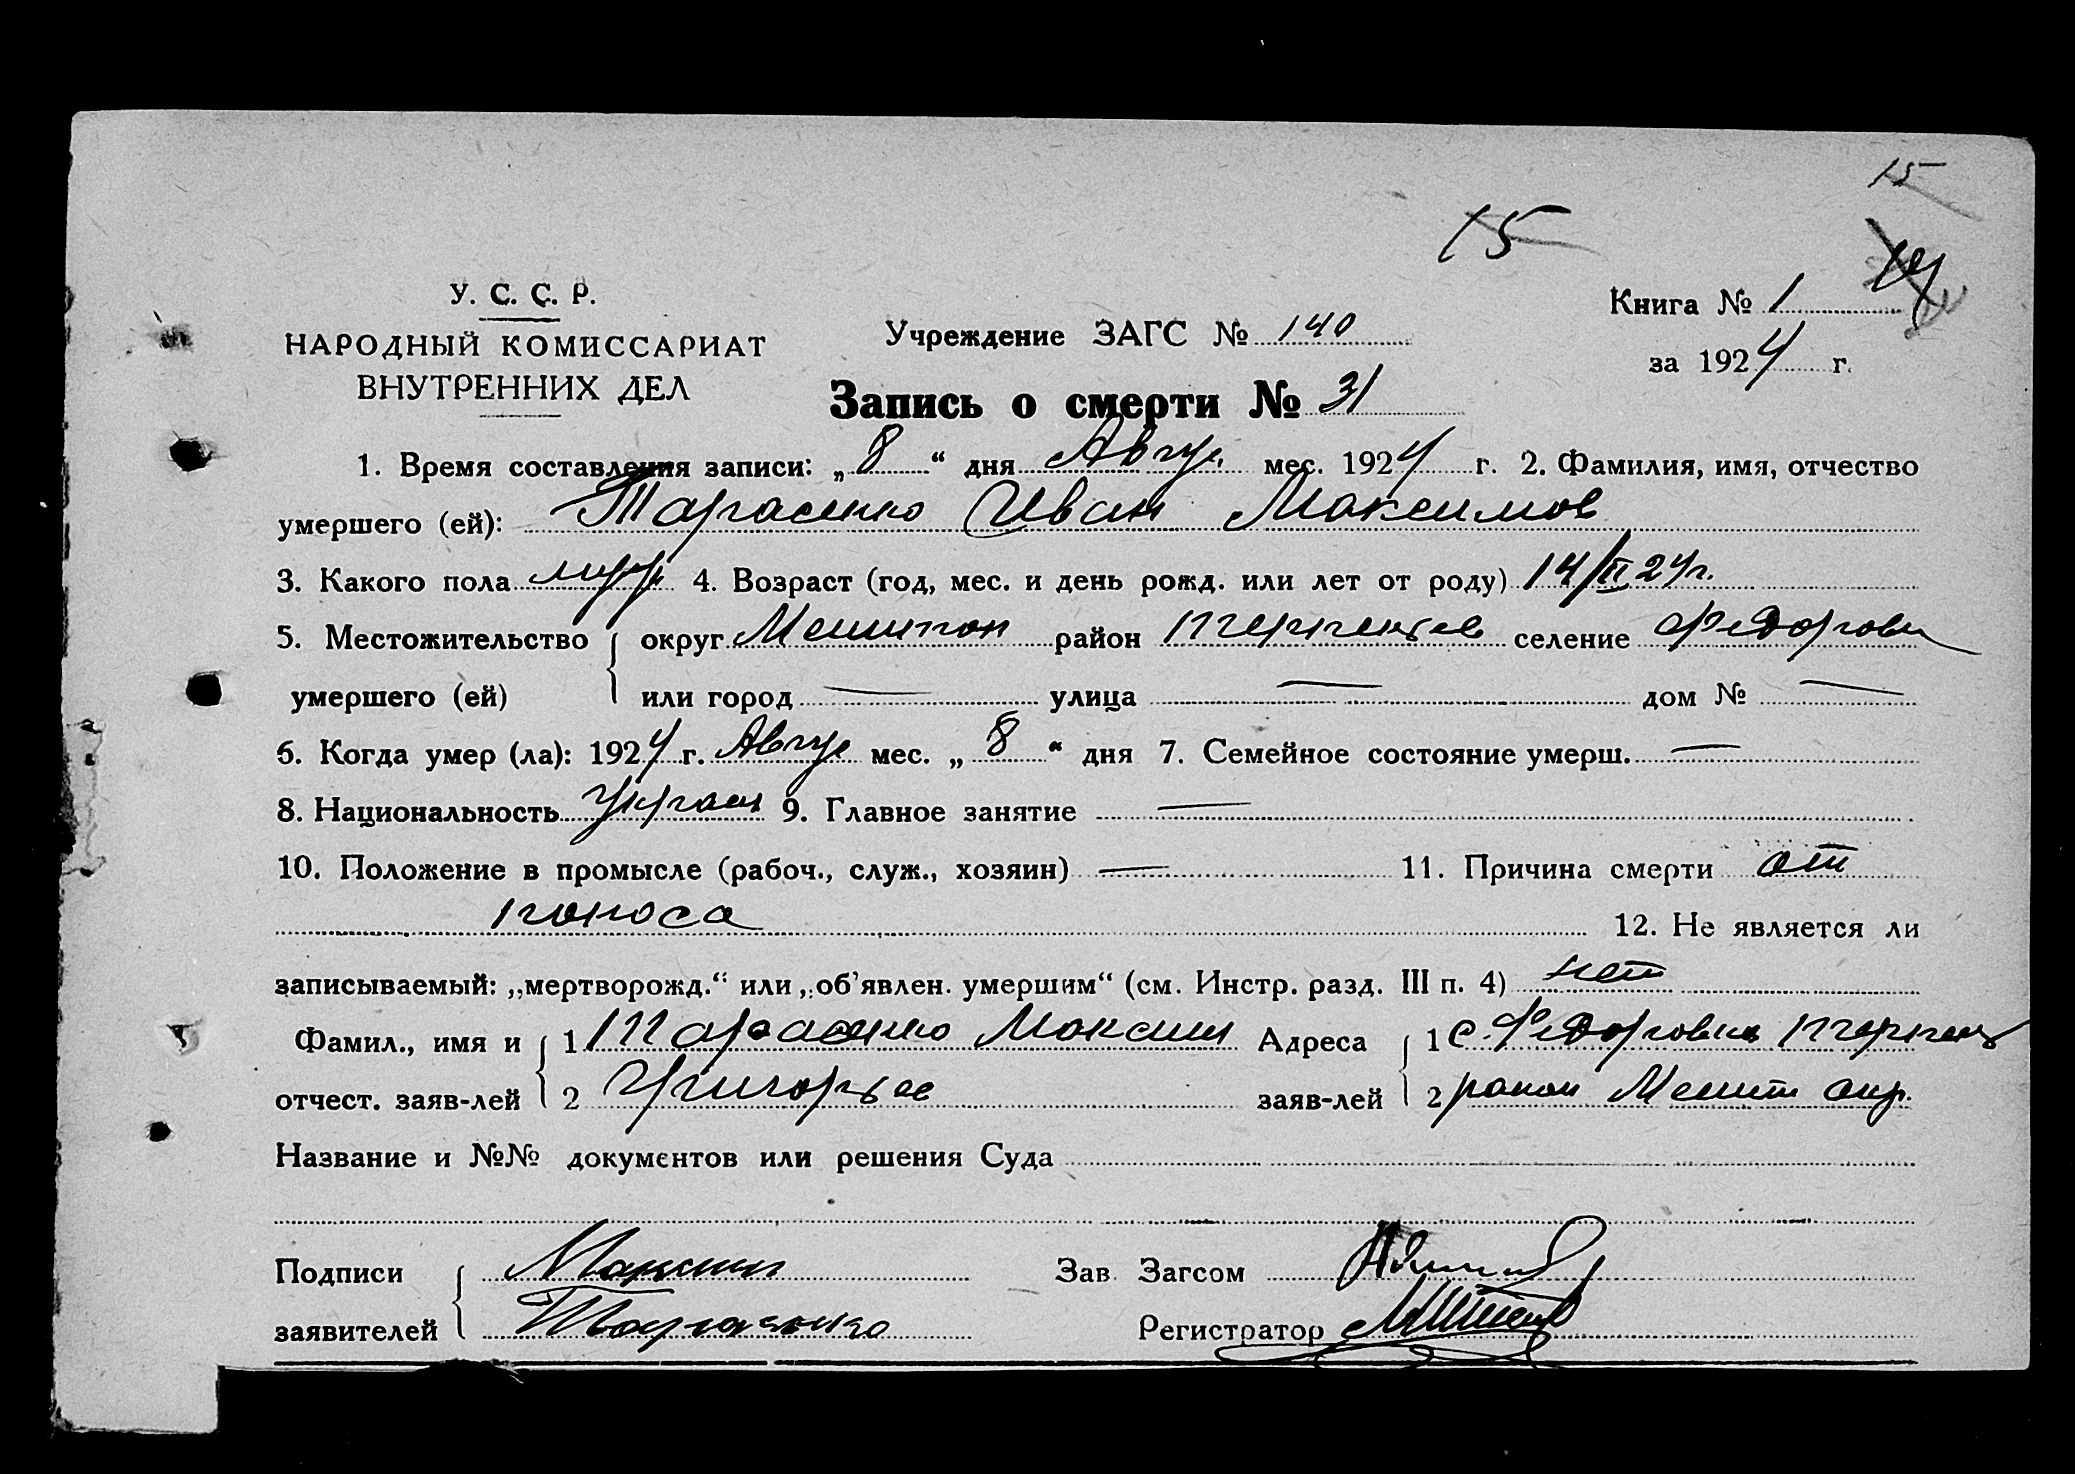 15
15
14
У. С. С. Р.
НАРОДНЫЙ КОМИССАРИАТ
ВНУТРЕННИХ ДЕЛ
Учреждение ЗАГС № 140
Книга № 1
за 1924 г.
Запись о смерти № 31
1. Время составления записи: „ 8 “ дня Авгус мес. 1924 г. 2. Фамилия, имя, отчество
умершего (ей): Тарасенко Иван Максимов
3. Какого пола муж 4. Возраст (год, мес. и день рожд. или лет от роду) 14/II 24 г.
5. Местожительство округ Мелитоп район селение Федоровк
умершего (ей) или город — улица — дом № —
6. Когда умер (ла): 1924 г. Авгус мес. „ 8 “ дня 7. Семейное состояние умерш. —
8. Национальность Украин 9. Главное занятие —
10. Положение в промысле (рабоч., служ., хозяин) — 11. Причина смерти от
поноса 12. Не является ли
записываемый: „мертворожд.“ или „об'явлен. умершим“ (см. Инстр. разд. III п. 4) нет
Фамил., имя и 1 Тарасенко Максим Адреса 1 с. Федоровка
отчест. заяв-лей 2 Григорьев заяв-лей 2 район Мелит окр.
Название и №№ документов или решения Суда
Подписи Максим Зав. Загсом
заявителей Тарасенко Регистратор